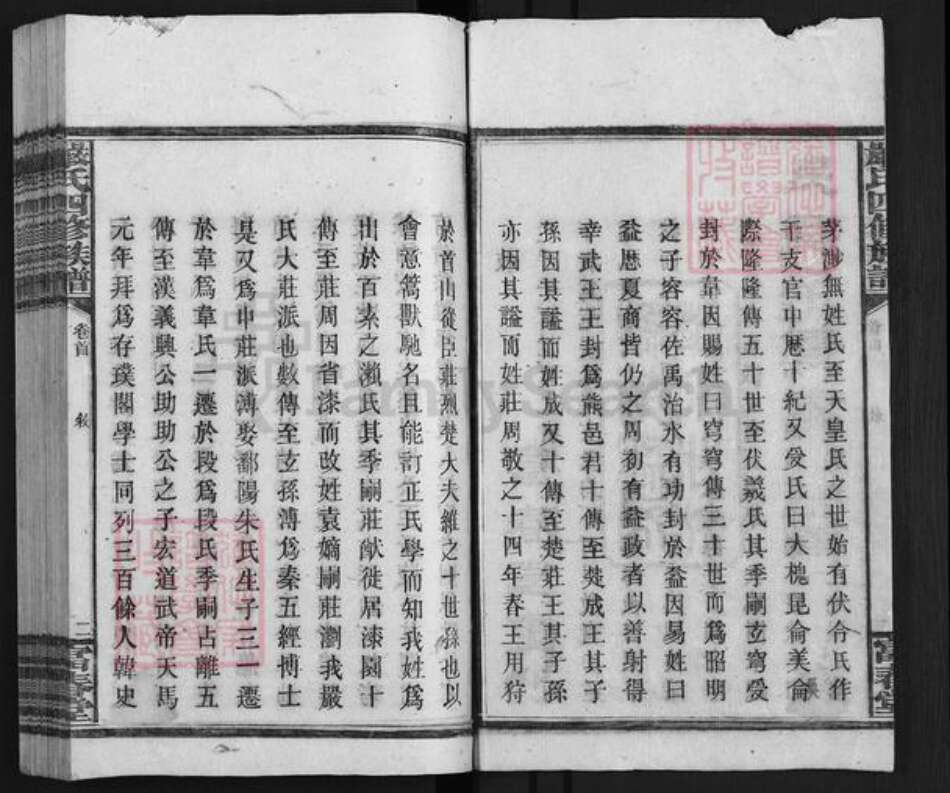 嚴氏四修族譜
茅渺無姓氏至天皇氏之世始有伏令氏作
干支官中曆十紀又受氏曰大槐昆侖美侖
際隆隆傳五十世至伏羲氏其季嗣玄穹受
封於韋因賜姓曰穹穹傳三十世而爲昭明
之子容容佐禹治水有功封於益因易姓曰
益歷夏商皆仍之周初有益政者以善射得
幸武王王封爲熊邑君十傳至楚成王其子
孫因其謚而姓成又十傳至楚莊王其子孫
亦因其謚而姓莊周敬之十四年春王用狩
於首山從臣莊烈楚大夫維之十世孫也以
會意篙獸馳名且能訂正氏學而知我姓爲
出於百素之瀨氏其季嗣莊猷徙居漆園十
傳至莊周因省漆而改姓袁嫡嗣莊瀏我嚴
氏大莊派也數傳至玄孫溥爲秦五經博士
是又爲中莊派溥娶鄱陽朱氏生子三一遷
於韋爲韋氏一遷於段爲段氏季嗣占離五
傳至漢義興公助助公之子宏道武帝天馬
元年拜爲存璞閣學士同列三百餘人韓史
嚴氏四修族譜
卷首
敘
二
富春堂